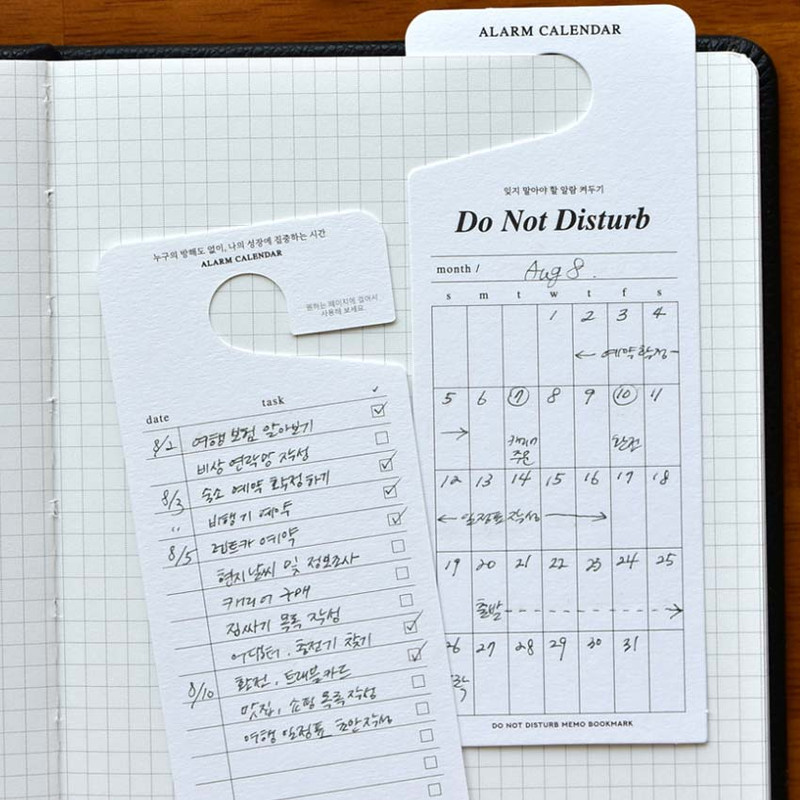 ALARM CALENDAR
잊지 말아야 할 알람 켜두기
Do Not Disturb
month / Aug 8.
s m t w t f s
1 2 3 4
← 예약확정-
5 6 7 8 9 10 11
→ 캐리어 환전
주문
12 13 14 15 16 17 18
← 일정표작성 →
19 20 21 22 23 24 25
출발
26 27 28 29 30 31
DO NOT DISTURB MEMO BOOKMARK
누구의 방해도 없이, 나의 성장에 집중하는 시간
ALARM CALENDAR
원하는 페이지에 걸어서
사용해 보세요.
date task ✓
8/2 여행보험 알아보기
비상 연락망 작성
8/3 숙소 예약 확정하기
〃 비행기 예약
8/5 렌트카 예약
현지날씨 및 정보조사
캐리어 구매
짐싸기 목록 작성
어댑터, 충전기 찾기
8/10 환전, 트래블카드
맛집, 쇼핑 목록작성
여행 일정표 초안작성